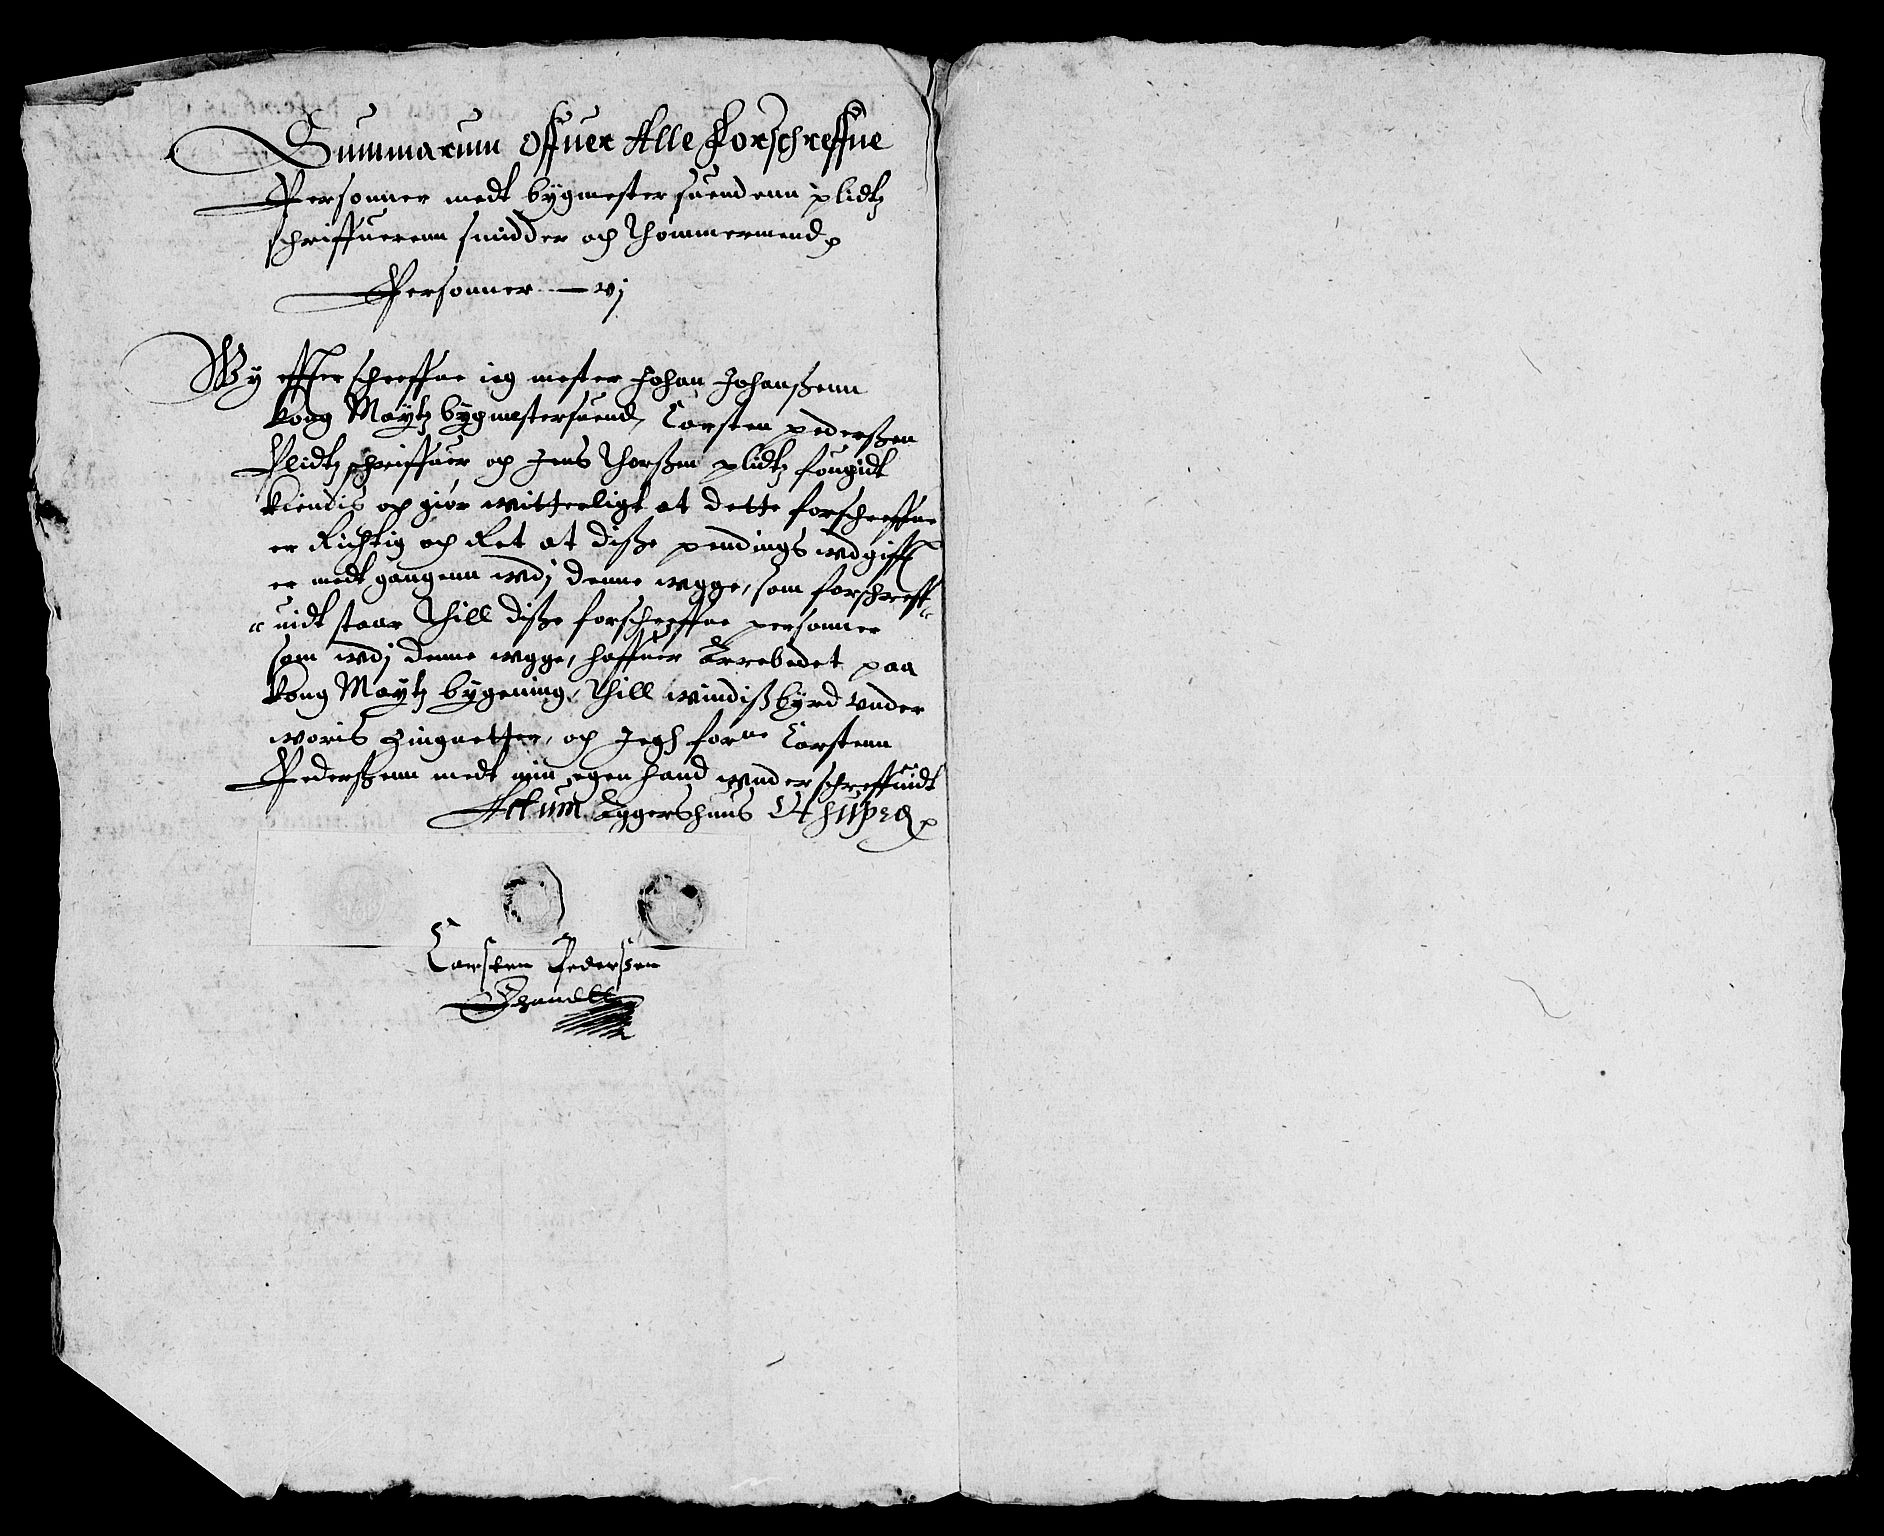 Summarum Offuer Alle Forschreffne
Personner medt bygmester suendenn plidtz
schriffuerenn smidder och Thommermend
Personner — vj
Wy effter schreffne ieg mester Johan Johanßenn
kong Maytz bygmestersuend, Carsten pederßen
Plidtz schriffuer och Jens Thorßen plidtz fougidt
kiendis och giør witterligt at dette forschreffne
er Richtig och Ret at diße pendings wdgifft
er medt gangenn wdj denne wgge, som forschreff-
uidt staar Thill diße forschreffne personner
som wdj denne wgge, haffuer Arrebedet paa
kong Maytz bygening, Thill windißbyrd vnder
woris Zingnetter, och Jegh forne Carstenn
Pederßenn medt min egen hand wnderschreffuidt
Actum Aggershuus
Carsten Pederßen
Ehandtt